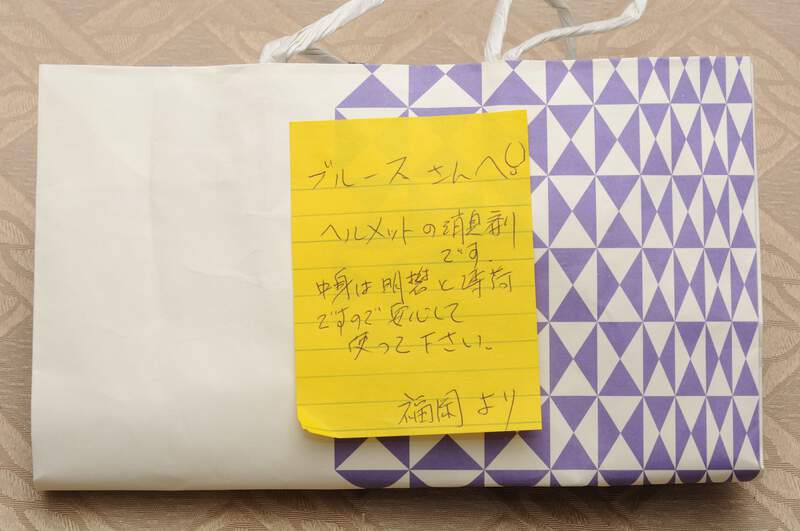 ブルース さんへ!
ヘルメットの消臭剤
です.
中身は明礬と薄荷
ですので安心して
使って下さい。
福岡 より